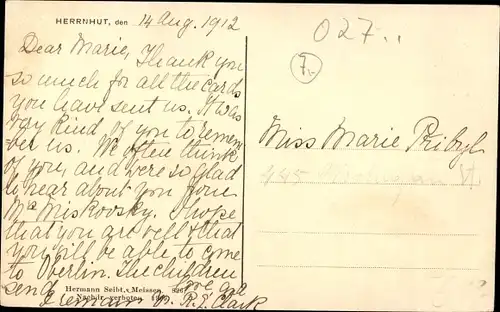 HERRNHUT, den 14 Aug. 1912
Dear Marie, Thank you
so much for all the cards
you have sent us. It was
very kind of you to remem
ber us. We often think
of you, and were so glad
to hear about you from
Mr Miskovsky. I hope
that you are well & that
you will be able to come
to Oberlin. The children
send love and
R. E. Clark
Hermann Seibt, Meissen.
Nachdr. verboten.
027..
7.-
Miss Marie Pribyl
445 Michigan St